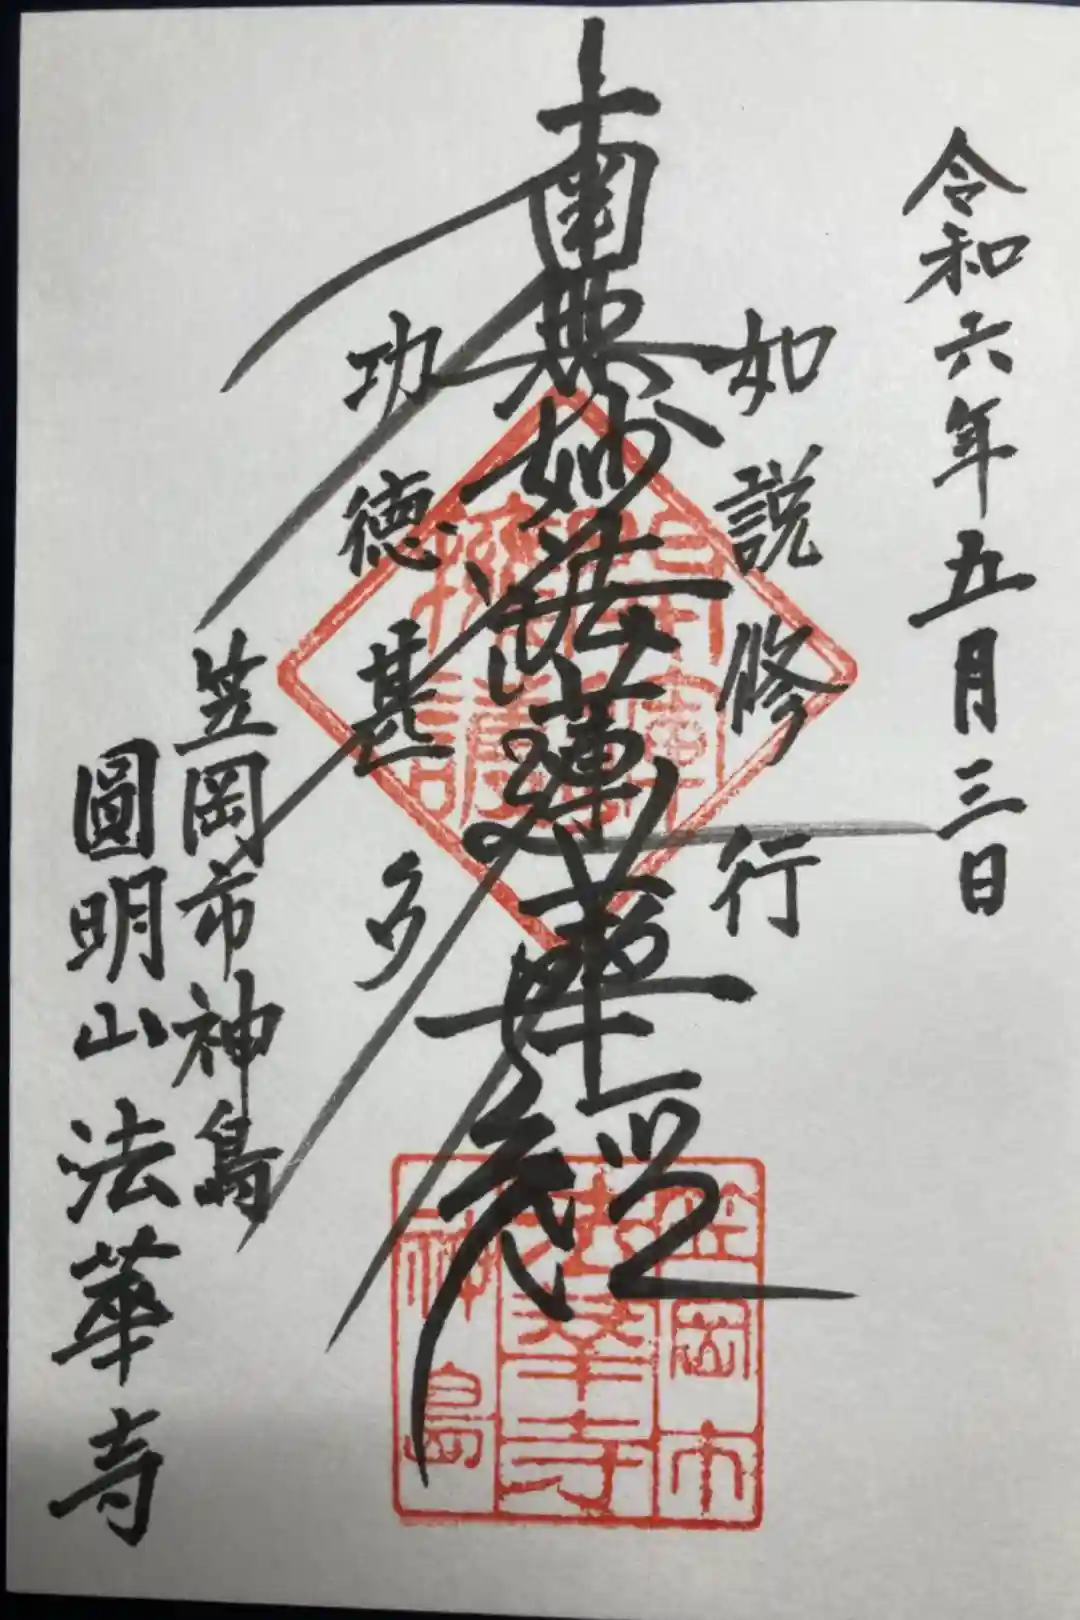 令和六年五月三日
如説修行
南無妙法蓮華経
功徳甚多
笠岡市神島
圓明山法華寺
笠岡市
法華寺
神島